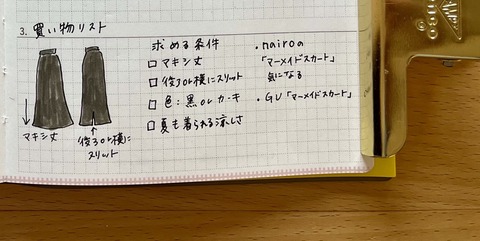 3. 買い物リスト
マキシ丈
後ろor横に
スリット
求める条件
□ マキシ丈
□ 後ろor横にスリット
□ 色:黒orカーキ
□ 夏も着られる涼しさ
・nairoa
「マーメイドスカート」
気になる
・GU「マーメイドスカート」